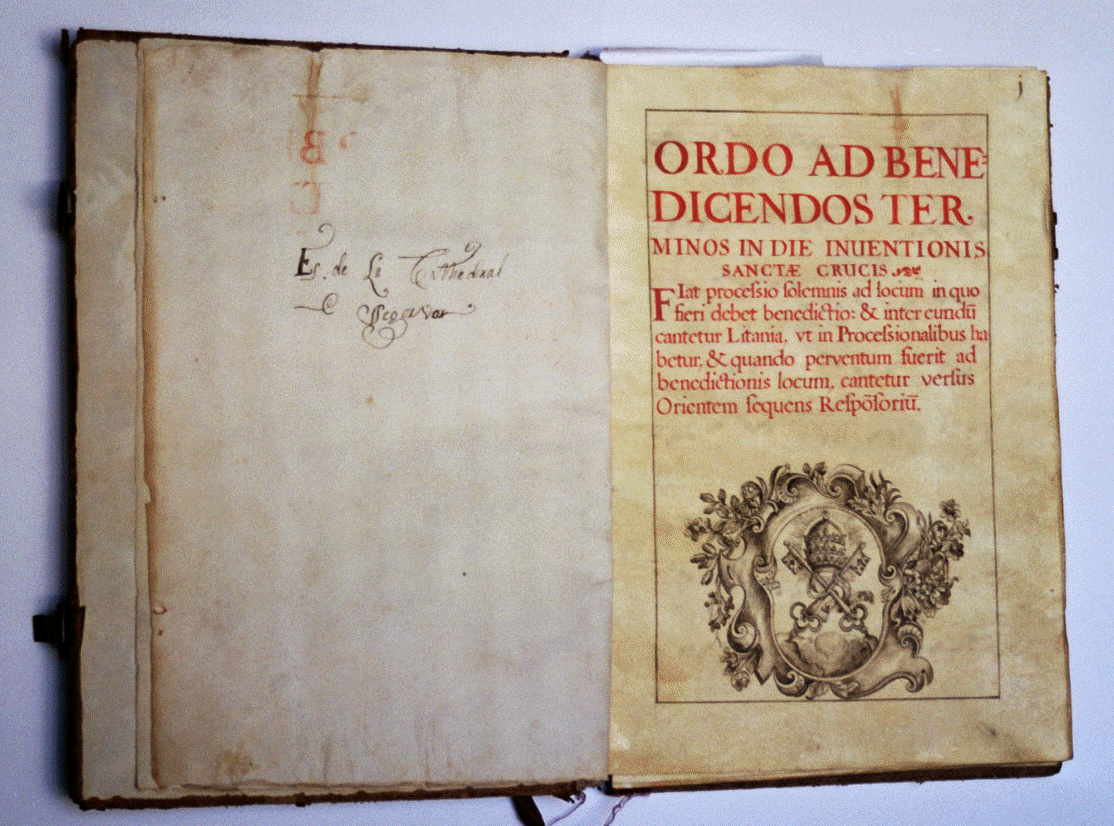 Es. de La Cathedral
j
ORDO AD BENE=
DICENDOS TER,
MINOS IN DIE INUENTIONIS
SANCTÆ CRUCIS.
FIat proceſsio ſolemnis ad locum in quo
fieri debet benedictio: & inter eundũ
cantetur Litania, vt in Proceſsionalibus ha
betur, & quando perventum fuerit ad
benedictionis locum, cantetur verſus
Orientem ſequens Reſpõſoriũ.